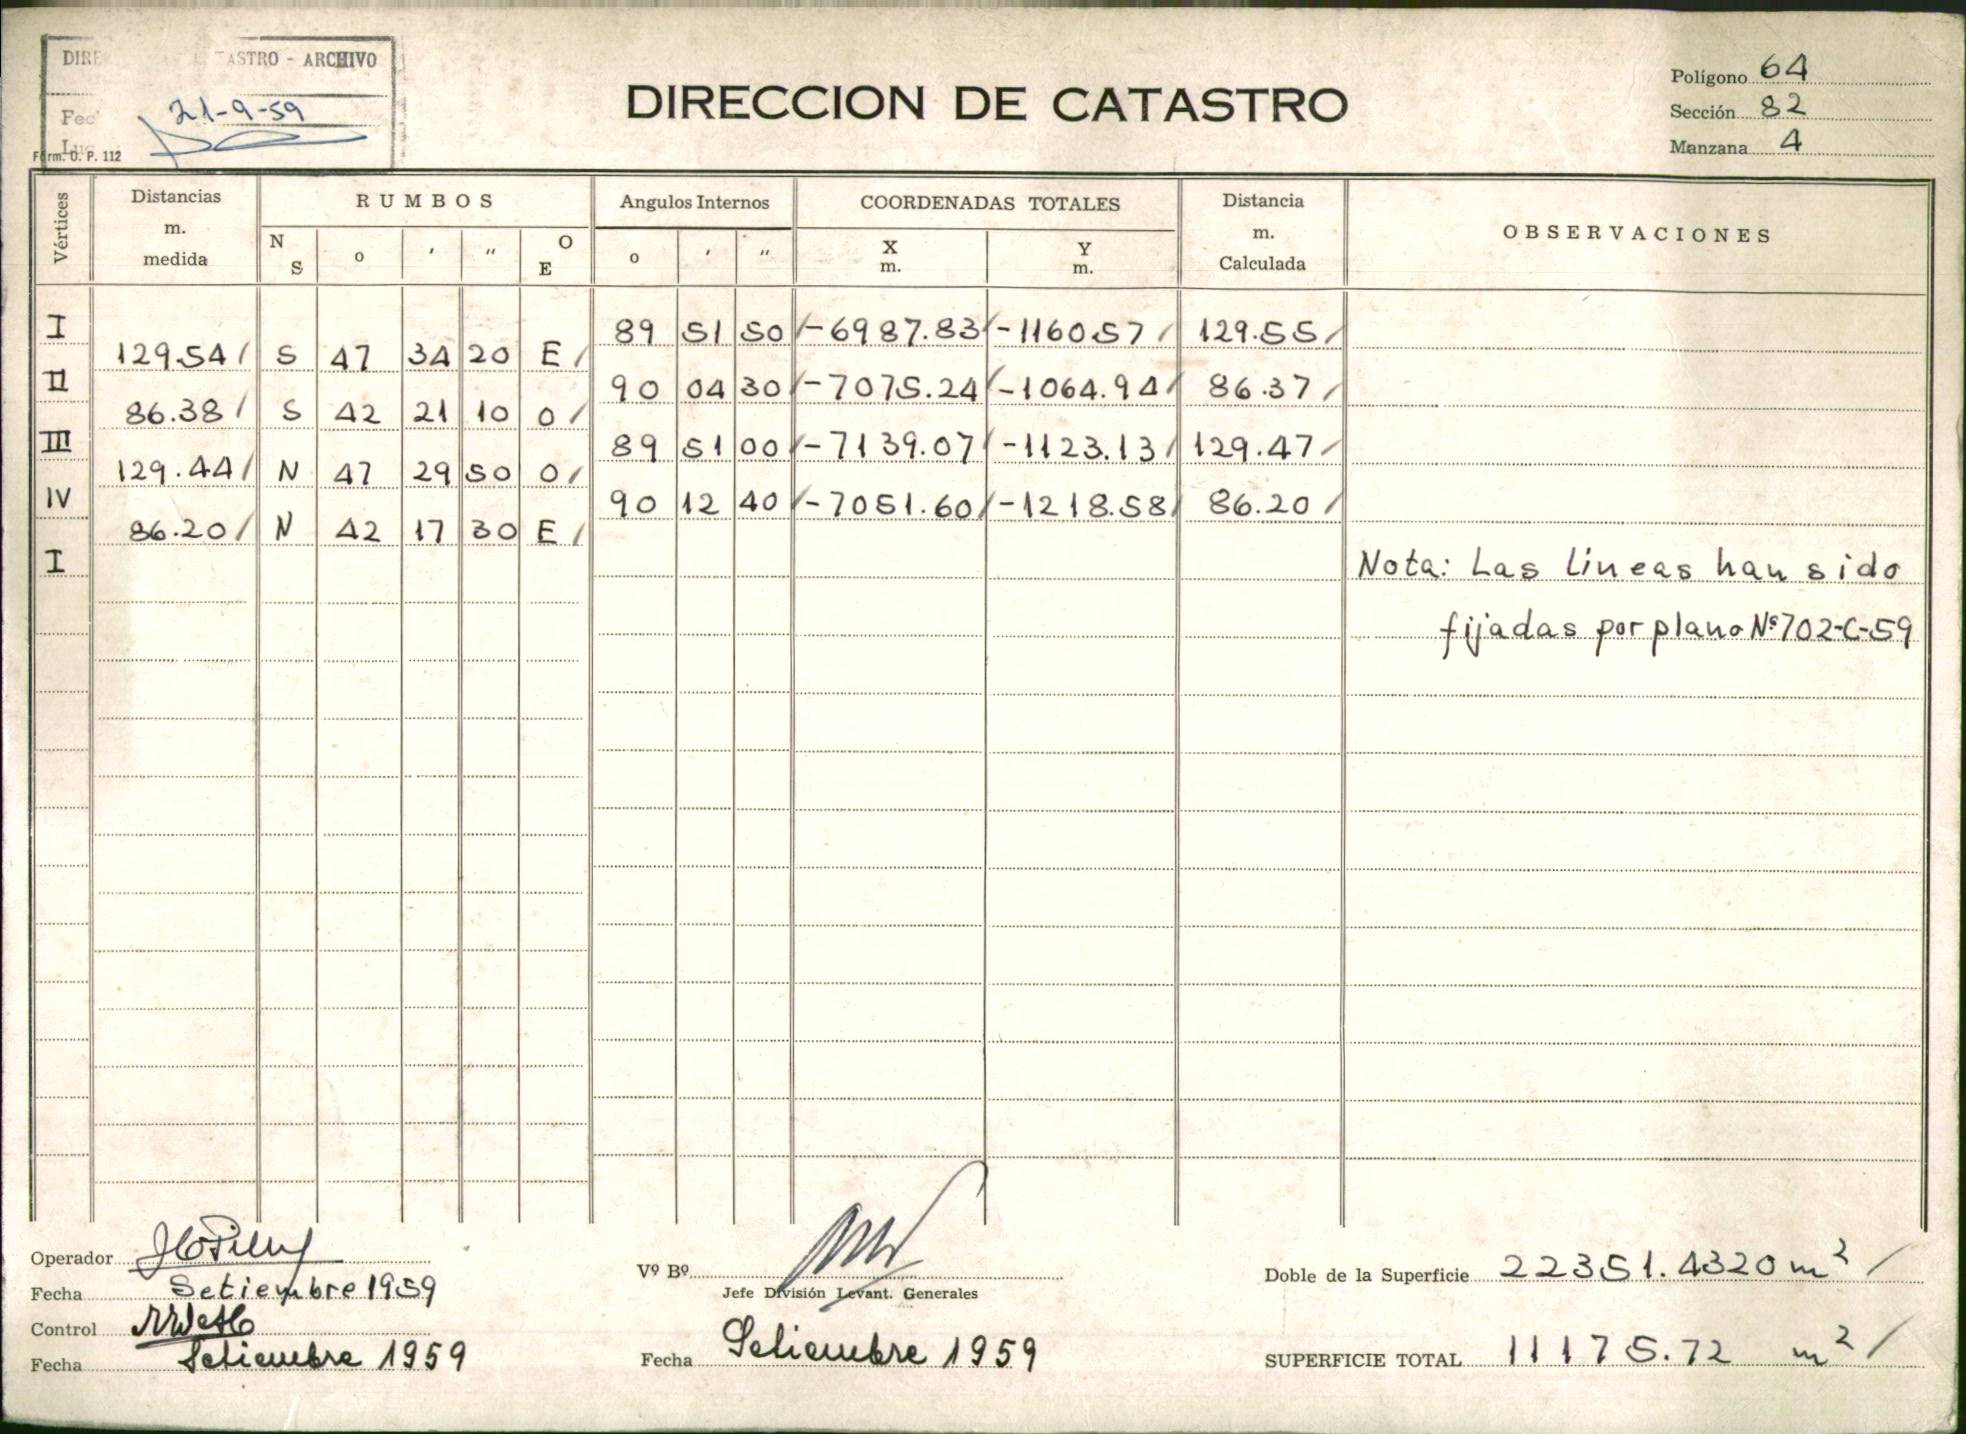 DIRE ASTRO - ARCHIVO
Fec 21-9-59
Lu
Form. O. P. 112
DIRECCION DE CATASTRO
Polígono 64
Sección 82
Manzana 4
Vértices
Distancias m. medida
RUMBOS
N S o ′ ″ O E
Angulos Internos
o ′ ″
COORDENADAS TOTALES
X m. Y m.
Distancia m. Calculada
OBSERVACIONES
I 89 51 50 -6987.83 -1160.57 129.55
129.54 S 47 34 20 E
II 90 04 30 -7075.24 -1064.94 86.37
86.38 S 42 21 10 O
III 89 51 00 -7139.07 -1123.13 129.47
129.44 N 47 29 50 O
IV 90 12 40 -7051.60 -1218.58 86.20
86.20 N 42 17 30 E
I
Nota: Las lineas han sido
fijadas por plano Nº 702-C-59
Operador
Fecha Setiembre 1959
Control
Fecha Setiembre 1959
Vº Bº
Jefe División Levant. Generales
Fecha Setiembre 1959
Doble de la Superficie 22351.4320 m²
SUPERFICIE TOTAL 11175.72 m²